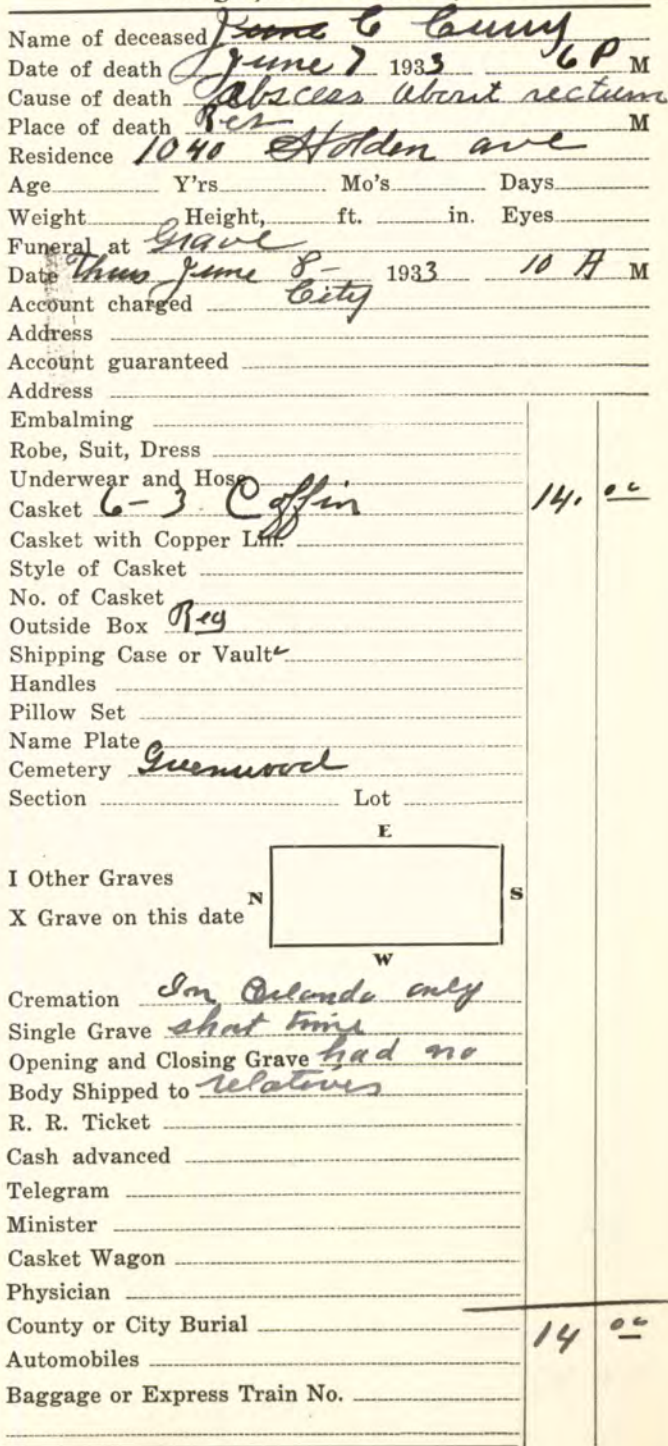 Name of deceased June C Curry
Date of death June 7 1933 6 P M
Cause of death Abscess about rectum
Place of death Res M
Residence 1040 Holden ave
Age Y'rs Mo's Days
Weight Height, ft. in. Eyes
Funeral at Grave
Date Thurs June 8- 1933 10 A M
Account charged City
Address
Account guaranteed
Address
Embalming
Robe, Suit, Dress
Underwear and Hose
Casket 6-3 Coffin 14. 00
Casket with Copper Lin.
Style of Casket
No. of Casket
Outside Box Reg
Shipping Case or Vault
Handles
Pillow Set
Name Plate
Cemetery Greenwood
Section Lot
E
I Other Graves
N S
X Grave on this date
W
Cremation In Orlando only
Single Grave short time
Opening and Closing Grave had no
Body Shipped to relatives
R. R. Ticket
Cash advanced
Telegram
Minister
Casket Wagon
Physician
County or City Burial 14 00
Automobiles
Baggage or Express Train No.